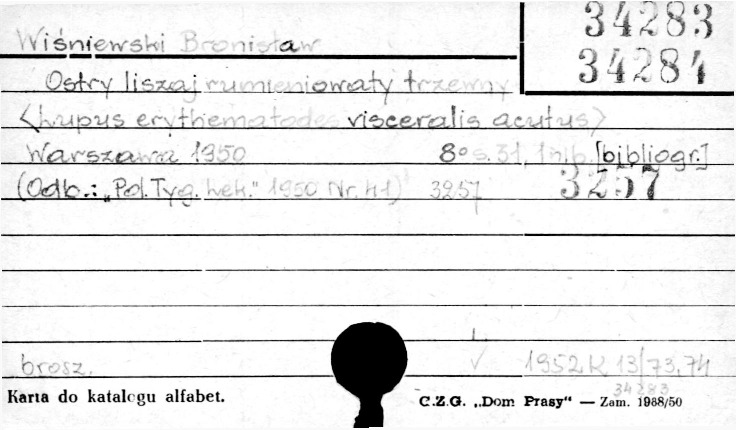 34283
Wiśniewski Bronisław
34284
Ostry liszaj rumieniowaty trzewny
<Lupus erythematodes visceralis acutus>
Warszawa 1950 8° s. 31, 1 nlb. [bibliogr.]
(Odb.: „Pol. Tyg. Lek." 1950 Nr. 41) 3257 3257
brosz. 1952 K 13/73,74
34283
Karta do katalogu alfabet. C.Z.G. „Dom Prasy“ — Zam. 1988/50